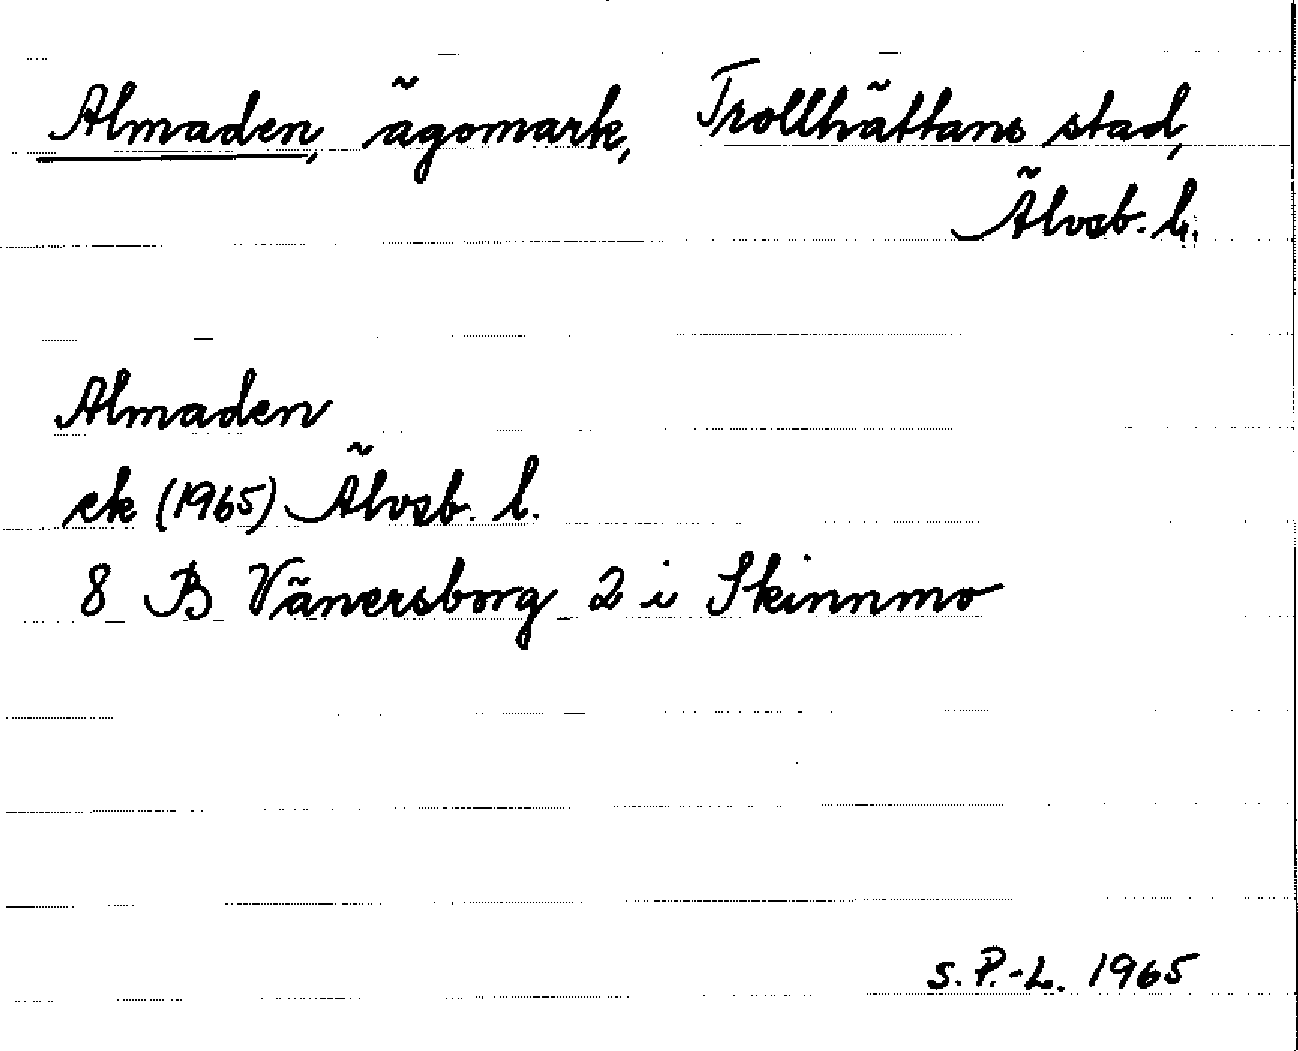 Almaden, ägomark, Trollhättans stad,
Älvsb. l.
Almaden
ek (1965) Älvsb. l.
8 B Vänersborg 2 i Skinnmo
S. P.-L. 1965